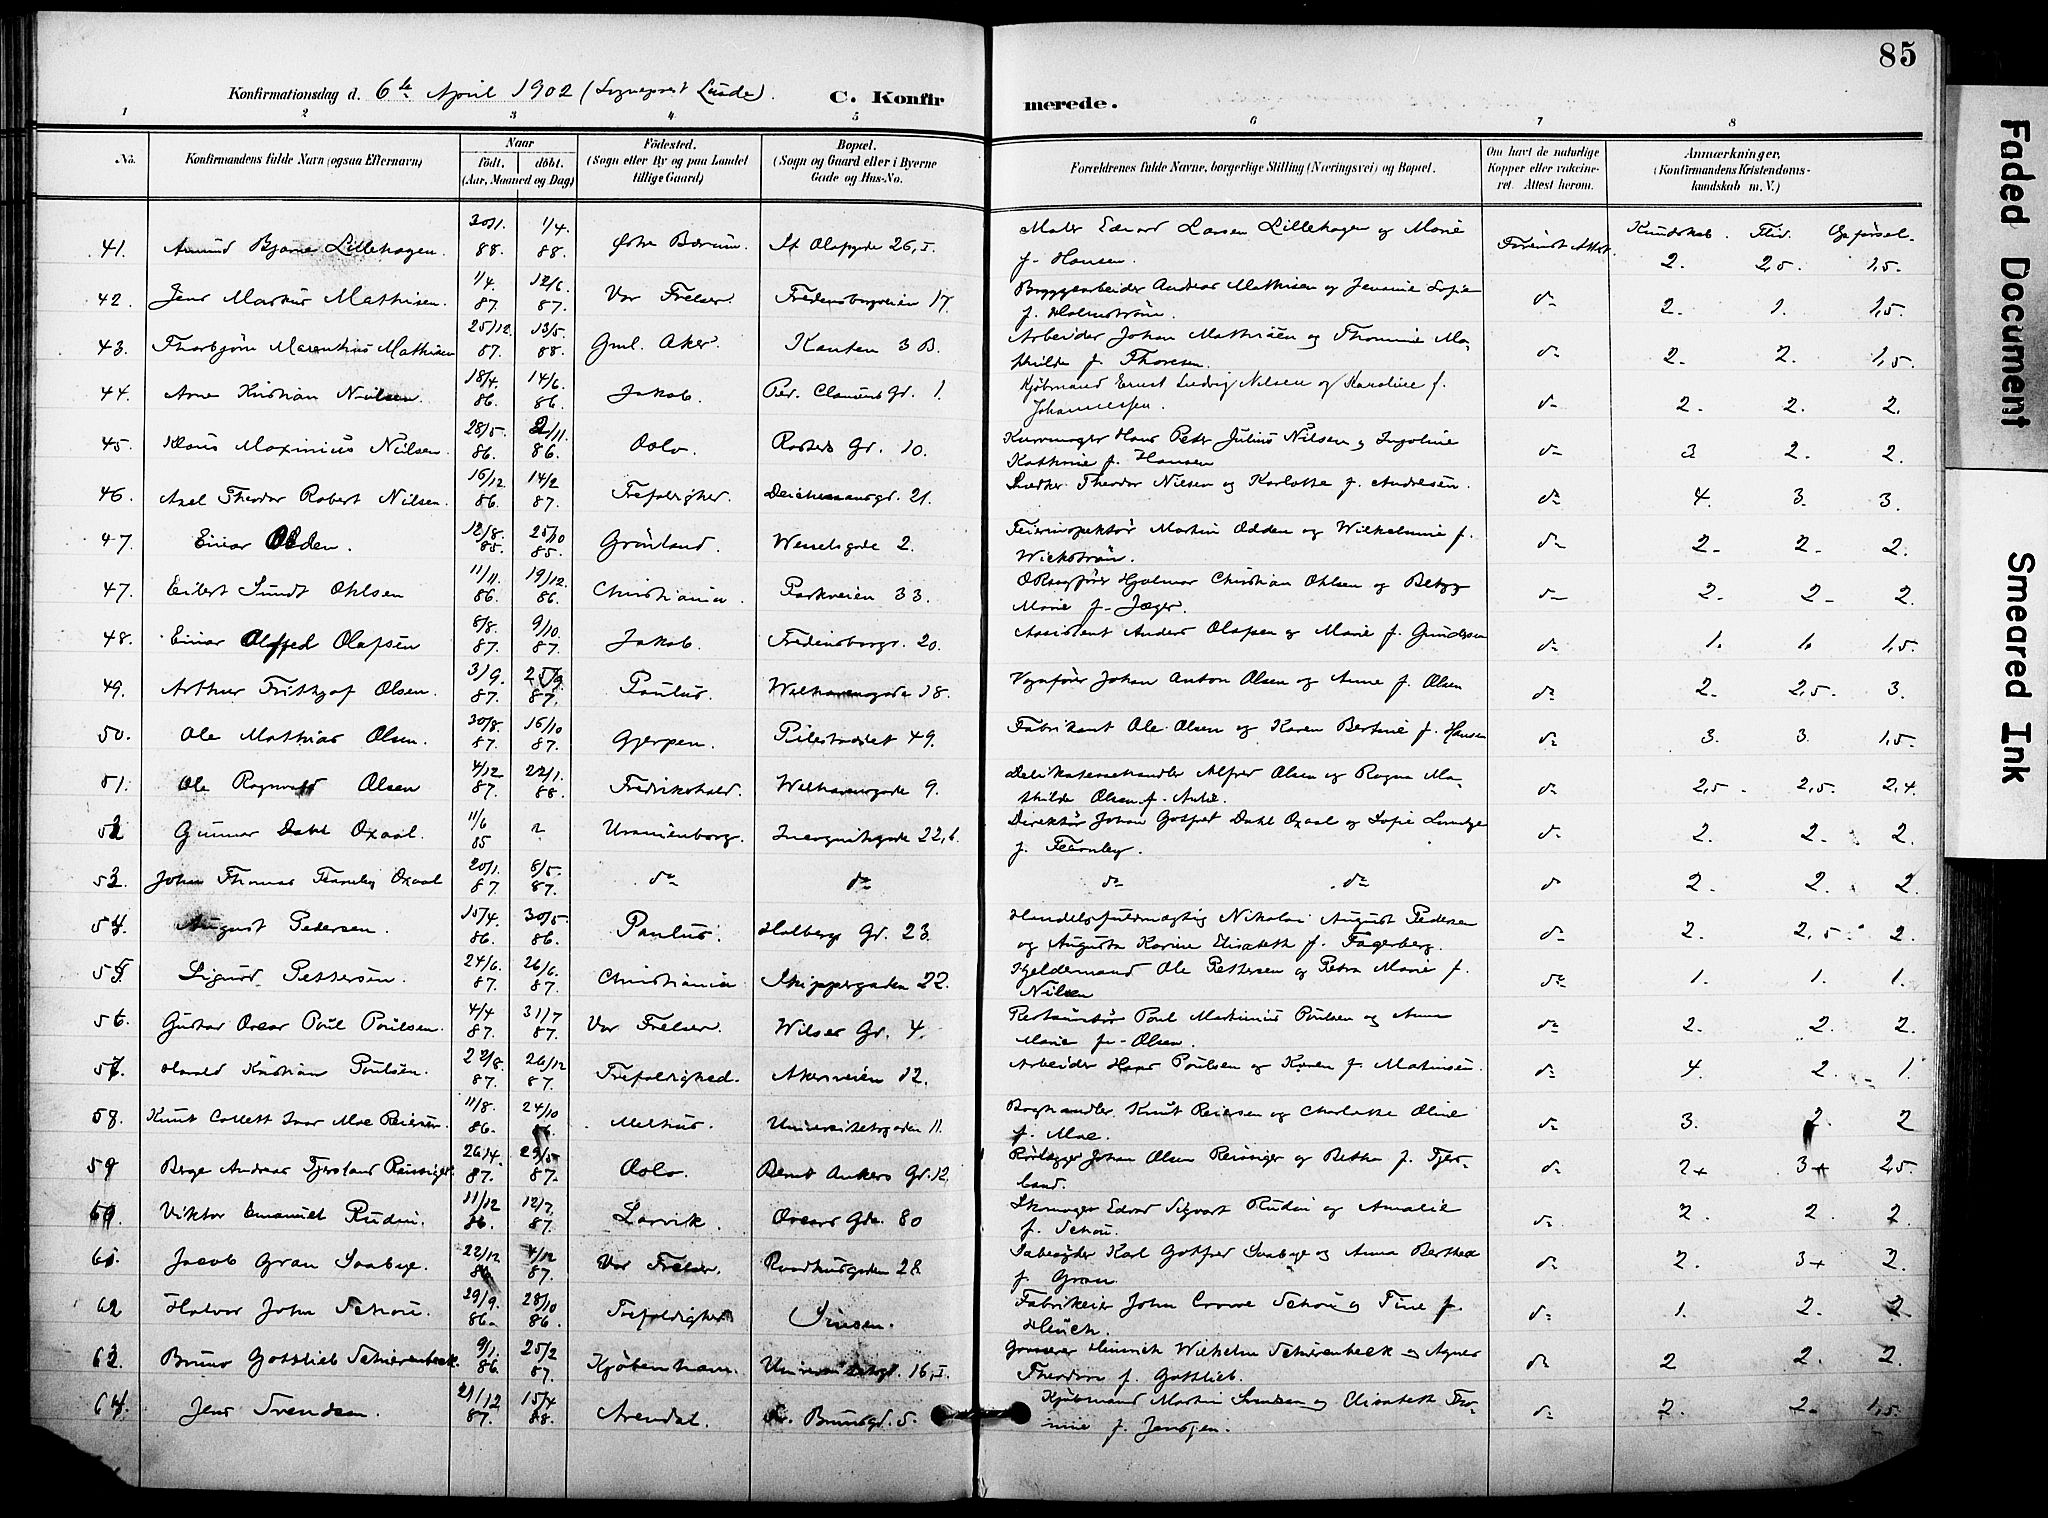 85
Konfirmationsdag d. 6te April 1902 (Sogneprest Lunde). C. Konfir merede.
1 2 3 4 5 6 7 8
No. Konfirmandens fulde Navn (ogsaa Efternavn) Naar født, døbt. (Aar, Maaned og Dag) Fødested. (Sogn eller By og paa Landet tillige Gaard) Bopæl. (Sogn og Gaard eller i Byerne Gade og Hus-No. Forældrenes fulde Navne, borgerlige Stilling (Næringsvei) og Bopæl. Om havt de naturlige Kopper eller vakcineret. Attest herom. Anmærkninger, (Konfirmandens Kristendomskundskab m. V.)
Kundskab. Flid. Opførsel.
41. Amund Bjarne Lillehagen. 30/1. 88. 1/4. 88. Østre Bærum. St. Olafsgade 26, I. Maler Edvard Larsen Lillehagen og Marie f. Hansen. Forevist Attest. 2. 2,5. 1,5.
42. Jens Markus Mathisen. 1/4. 87. 12/6. 87. Vor Frelser. Fredensborgveien 17. Bryggearbeider Andreas Mathisen og Jensine Sofie f. Holmström. do 2. 1. 1,5.
43. Thorbjørn Marentius Mathisen 25/12. 87. 13/5. 88. Gml. Aker. Kanten 3 B. Arbeider Johan Mathisen og Thomine Mathilde f. Thoresen. do 2. 2. 1,5.
44. Arne Kristian Nielsen. 18/4. 86. 14/6. 86. Jakob. Ped. Clausens Gr. 1. Kjøbmand Ernst Ludvig Nilsen og Karoline f. Johannessen. do 2. 2. 2.
45. Klaus Maximius Nilsen. 28/5. 86. 21/11. 86. Oslo. Rosteds Gr. 10. Kurvmager Hans Peter Julius Nilsen og Ingoline Kathrine f. Hansen do 3 2. 2.
46. Axel Theodor Robert Nilsen. 16/12. 86. 14/2 87. Trefoldighed. Deichmansgr. 21. Snedker Theodor Nilsen og Karlotte f. Andresen. do 4. 3. 3.
47. Einar Odden. 12/8. 85. 25/10 85. Grønland. Wesselsgade 2. Feierinspektør Martin Odden og Wilhelmine f. Wickstrøm. do 2. 2. 2.
47. Eilert Sundt Ohlsen 11/11. 86. 19/12. 86. Christiania. Parkveien 33. Christian Ohlsen og Betzy Marie f. Jæger. do 2. 2. 2.
48. Einar Olafsen 8/8. 87. 9/10. 87. Jakob. Fredensborgv. 20. Assistent Anders Olafsen og Marie f. Gundersen do 1. 1. 1,5.
49. Arthur Frithjof Olsen. 3/9. 87. 25/9. 87. Paulus. Welhavensgade 18. Vognfører Johan Anton Olsen og Anne f. Olsen do 2. 2,5. 3.
50. Ole Mathias Olsen. 30/8. 87. 16/10 87. Gjerpen. Pilestrædet 49. Fabrikant Ole Olsen og Karen Bertine f. Hansen do 3. 3. 1,5.
51. Ole Ragnvald Olsen 4/12 87. 22/1. 88. Fredrikshald. Welhavensgade 9. Delikatessehandler Alfred Olsen og Ragna Mathilde Olsen f. do 2,5. 2,5. 2,4.
52 Gunnar Dahl Oxaal. 11/6 85 Uranienborg. Incognitogade 22, b. Direktør Johan Gotfred Dahl Oxaal og Sofie f. Fearnley. do 2. 2. 2.
53. John Thomas Fearnley Oxaal 20/1. 87. 8/5. 87. do do do do do 2. 2. 2.
54. August Pedersen. 15/4. 86. 30/5. 86. Paulus. Holbergs Gr. 23. Handelsfuldmægtig Nikolai August Pedersen og Augusta Karine Elisabeth f. Fagerberg. do 2. 2,5. 2.
55. Sigurd Pettersen. 24/6. 87. 26/6. 87. Christiania. Skippergaden 22. Kjeldermand Ole Pettersen og Petra Marie f. Nilsen do 1. 1. 1.
56. Gustav Oscar Poul Poulsen. 4/4 87. 31/7 87. Vor Frelser. Wilses Gr. 4. Restauratør Poul Martinius Poulsen og Anna Marie f. Olsen. do 2. 2. 2.
57. Harald Kristian Poulsen. 22/8. 87. 26/12 87. Trefoldighed. Akersveien 12. Arbeider Hans Poulsen og Karen f. Matinsen. do 4. 2. 1.
58. Knut Collett Ivar Moe Reiersen. 11/8. 86. 24/10 Matteus. Universitetsgaden 11. Boghandler Knut Reiersen og Charlotte Oline f. Moe. do 3. 2. 2
59 Berge Andreas Tjersland Reisiger. 26/4. 87. 29/5 87. Oslo. Bernt Ankers Gr. 12. Rørlægger Johan Olsen Reisiger og Bertha f. Tjersland. do 2+ 3+ 2,5.
60. Viktor Emanuel Rudin. 11/12 86. 12/7. 87. Larvik. Oscars Gde. 80 Skomager Edvard Sigvart Rudin og Amalie f. Schou. do 2. 2. 2.
61. Jacob Gran Saabye. 22/12 86 4/12 87. Vor Frelser. Raadhusgaden 28. Karl Gotfred Saabye og Anna Berthea f. Gran. do 2. 3+ 2.
62 Halvor John Schou. 29/9. 86. 28/10 86. Trefoldighed. Sinsen. Fabrikeier John Crowe Schou og Tine f. Heuch. do 1. 2. 2
63. Bruno Gottlieb Schierenbeck. 9/1. 86 25/2 87. Kjøbenhavn. Universitetsgd. 16, I. Grosserer Heinrich Wilhelm Schierenbeck og Agnes Theodora f. Gottlieb. do 2 2. 2.
64. Jens Svendsen. 21/12 87. 15/4 88. Arendal. Brunsgd. 5. Kjøbmand Martin Svendsen og Elisabeth Thomine f. Jenssen. do 2. 2. 1,5.
Faded Document
Smeared Ink